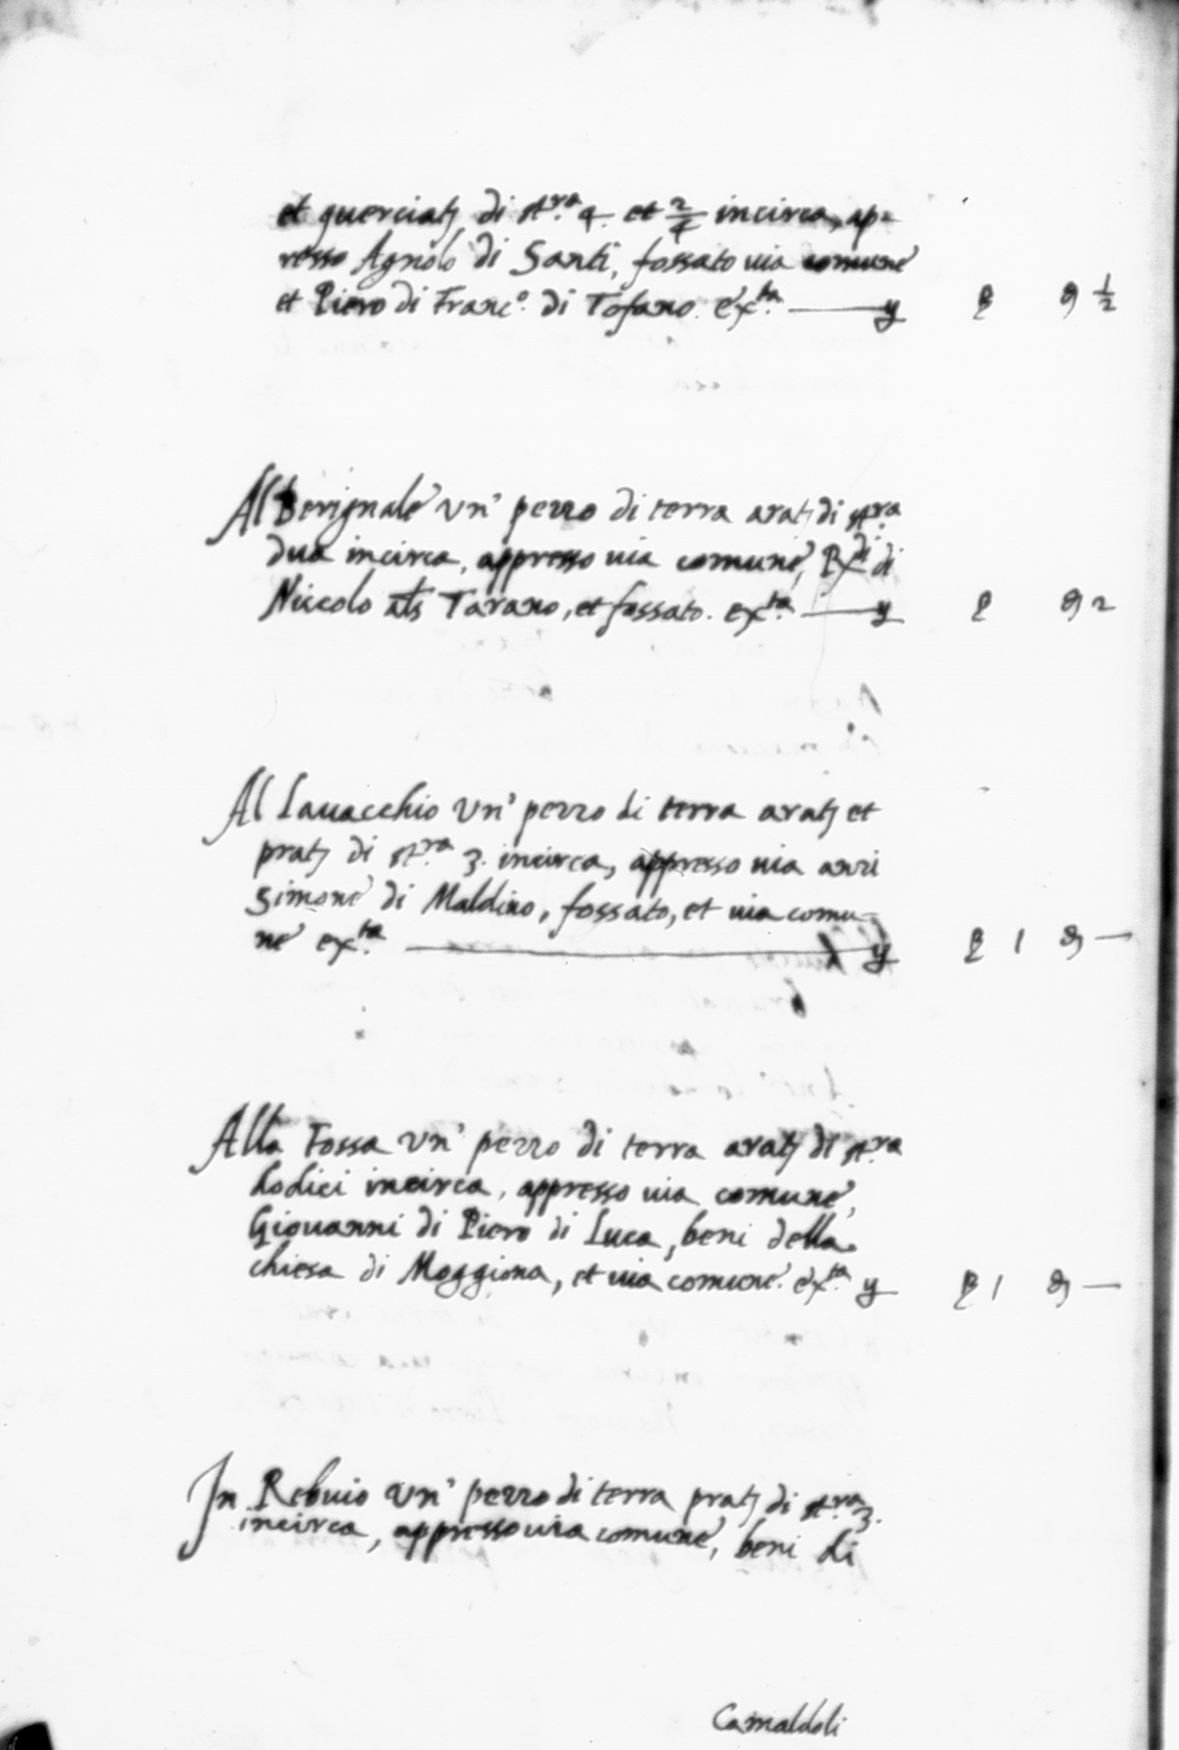 et querciatj di st.ra 4. et 2/4 incirca, ap=
resso Agnolo di Santi, fossato uia comune
et Piero di Franc.o di Tofano. ex.ta — y ₤ ₰ 1/2
Al Berignale un' pezzo di terra aratj di st.ra
dua incirca, appresso uia comune, di
Niccolo als Tarano, et fossato. ex.ta — y ₤ ₰ 2
Al Lauacchio un' pezzo di terra aratj et
pratj di st.ra 3. incirca, appresso uia anzi
Simone di Maldino, fossato, et uia comu=
ne ex.ta — y ₤ 1 ₰ —
Alla Fossa un' pezzo di terra aratj di st.ra
dodici incirca, appresso uia comune,
Giouanni di Piero di Luca, beni della
chiesa di Moggiona, et uia comune. ex.ta y ₤ 1 ₰ —
In Rebuio un' pezzo di terra pratj di st.ra 3.
incirca, appresso uia comune, beni di
Camaldoli